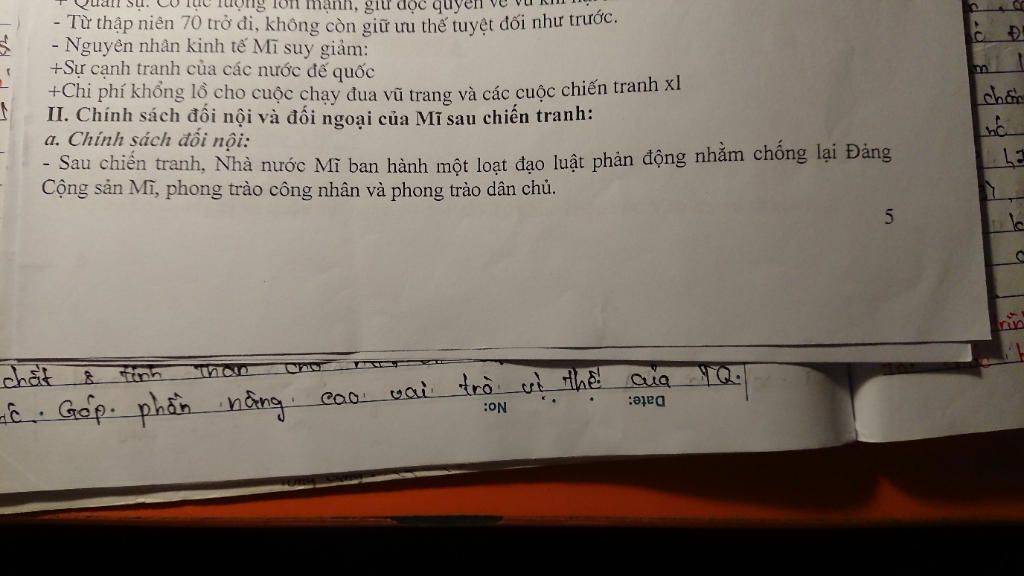 + Quân sự: Có lực lượng lớn mạnh, giữ độc quyền về vũ khí
- Từ thập niên 70 trở đi, không còn giữ ưu thế tuyệt đối như trước.
- Nguyên nhân kinh tế Mĩ suy giảm:
+Sự cạnh tranh của các nước đế quốc
+Chi phí khổng lồ cho cuộc chạy đua vũ trang và các cuộc chiến tranh xl
II. Chính sách đối nội và đối ngoại của Mĩ sau chiến tranh:
a. Chính sách đối nội:
- Sau chiến tranh, Nhà nước Mĩ ban hành một loạt đạo luật phản động nhằm chống lại Đảng
Cộng sản Mĩ, phong trào công nhân và phong trào dân chủ.
5
chất & tinh thần cho
Góp phần nâng cao vai trò vì thế của TQ.
No:
Date: